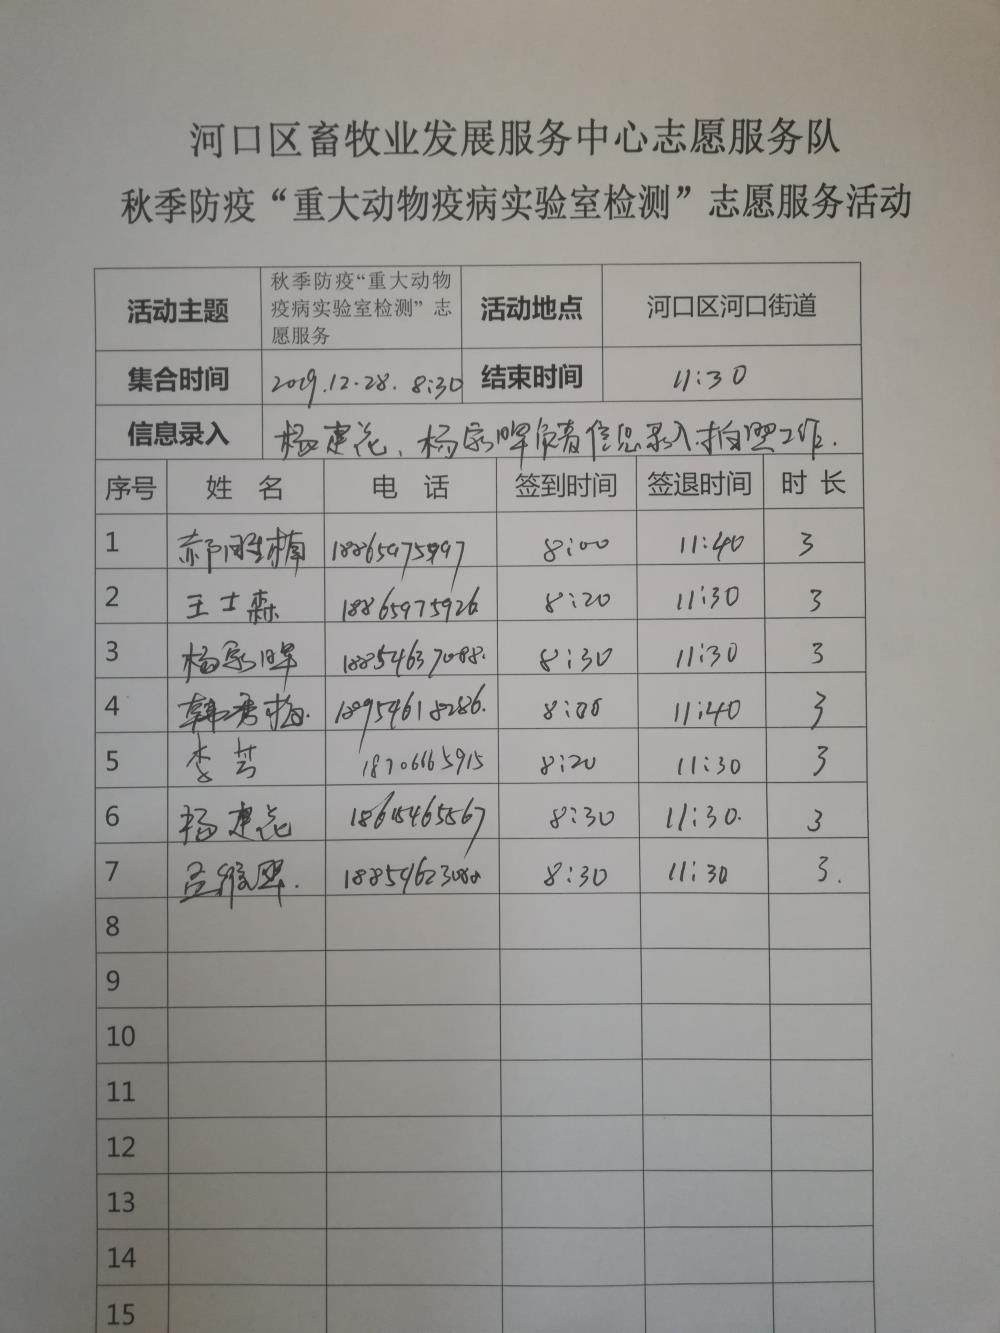 河口区畜牧业发展服务中心志愿服务队
秋季防疫“重大动物疫病实验室检测”志愿服务活动
活动主题 秋季防疫“重大动物疫病实验室检测”志愿服务 活动地点 河口区河口街道
集合时间 2019.12.28. 8:30 结束时间 11:30
信息录入 杨建花、杨家晖负责信息录入拍照工作.
序号 姓 名 电 话 签到时间 签退时间 时 长
1 郝胜楠 8:00 11:40 3
2 王士森 18865975926 8:20 11:30 3
3 杨家晖 18854637088. 8:30 11:30 3
4 8:00 11:40 3
5 李芸 18706665915 8:20 11:30 3
6 杨建花 18615465567 8:30 11:30. 3
7 8:30 11:30 3.
8
9
10
11
12
13
14
15